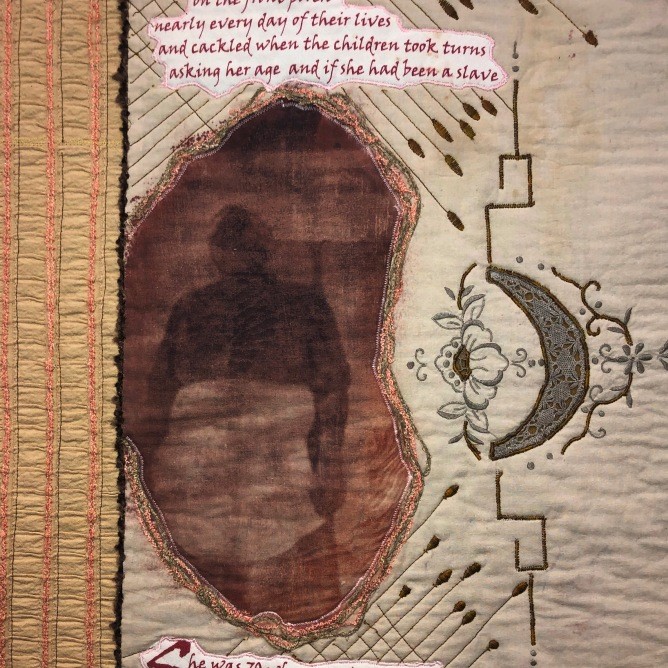 on the front porch
nearly every day of their lives
and cackled when the children took turns
asking her age and if she had been a slave
She was